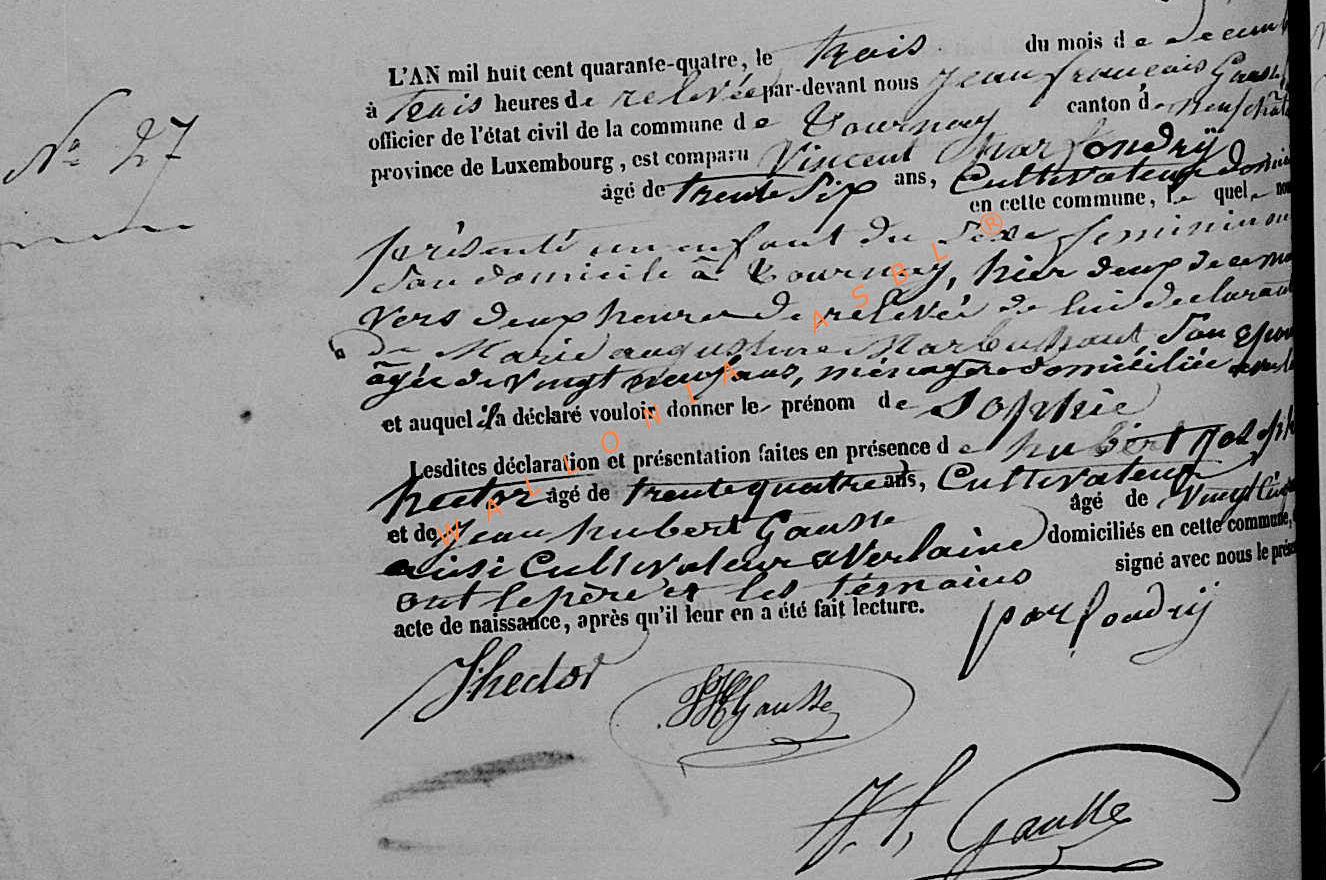 N° 27
L'AN mil huit cent quarante-quatre, le trois du mois de decem
à trois heures de relevée par-devant nous jean françois Gausse
officier de l'état civil de la commune de Tournay canton de neufchât
province de Luxembourg, est comparu Vincent Parfondrÿ
âgé de trente Six ans, Cultivateur domici
en cette commune, le quel nou
présenté un enfant du Sexe feminin
Son domicile à Tournay, hier deux decem
vers deux heures de relevée de lui declarant
de Marie augustine Son epou
âgée de vingt neuf ans, ménagère domiciliée
et auquel il a déclaré vouloir donner le prénom de Sophie
Lesdites déclaration et présentation faites en présence de hubert joseph
hector âgé de trente quatre ans, Cultivateur
et de Jean hubert Gausse âgé de Vingt
aussi Cultivateur a Verlaine domiciliés en cette commune,
ont le père et les témoins signé avec nous le prése
acte de naissance, après qu'il leur en a été fait lecture.
parfondrij
J hector
JH Gausse
J. f. Gausse
WALLONIA ASBL ®